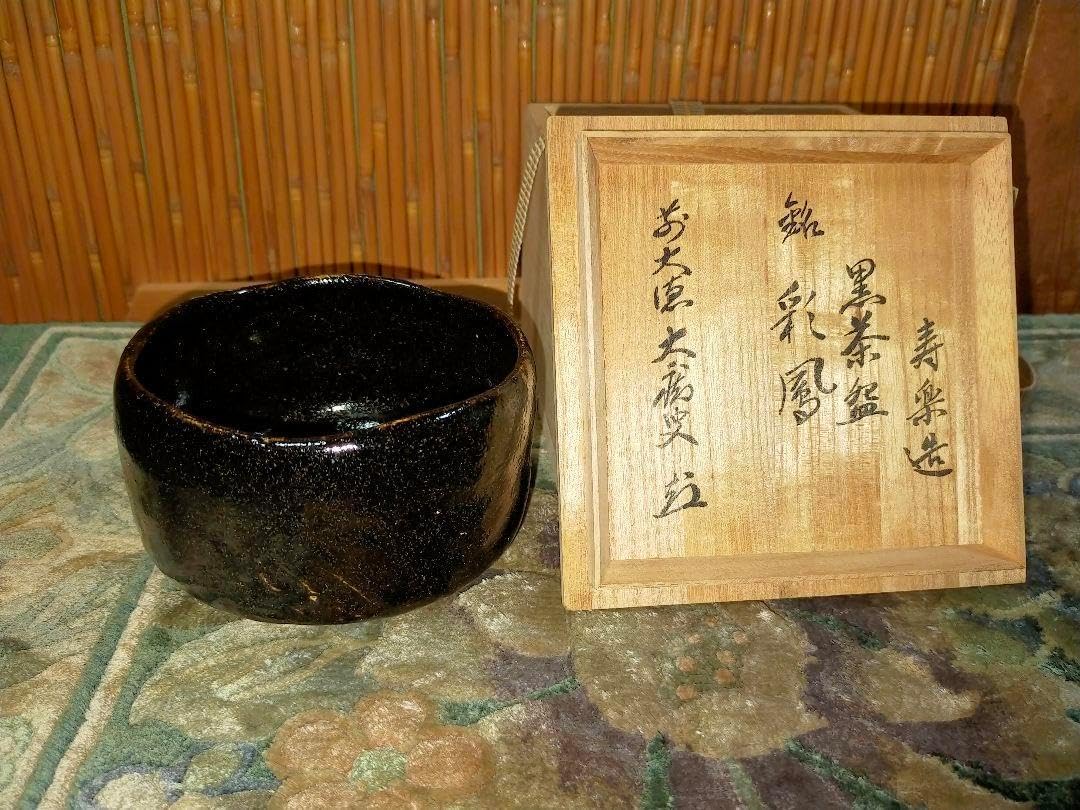 寿楽造
黒茶盌
銘 彩鳳
前大徳 大